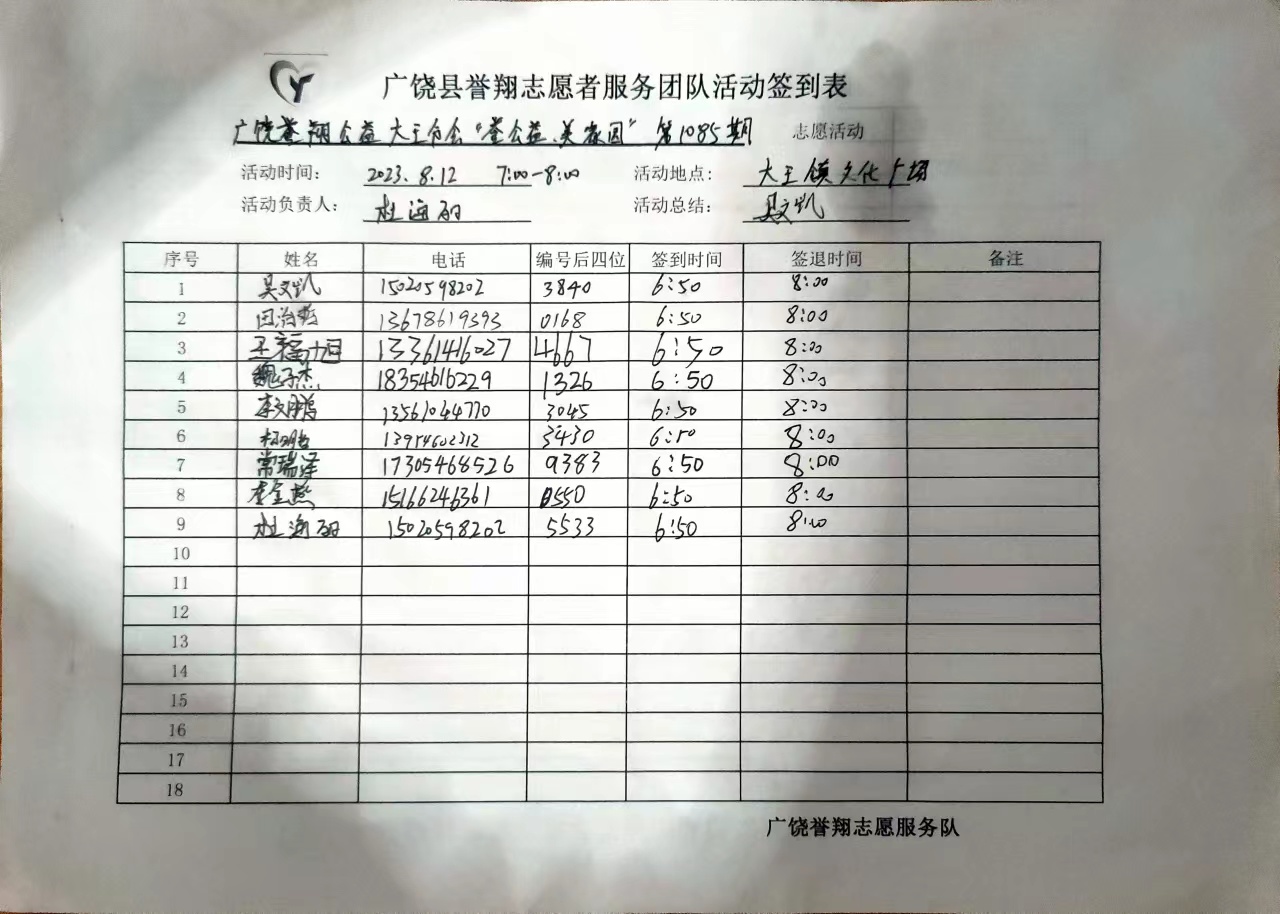 广饶县誉翔志愿者服务团队活动签到表
广饶誉翔公益大王分会"誉公益、美家园" 第1085期 志愿活动
活动时间： 2023.8.12 7:00-8:00 活动地点： 大王镇文化广场
活动负责人： 杜海丽 活动总结： 吴文凯
序号 姓名 电话 编号后四位 签到时间 签退时间 备注
1 吴文凯 15020598202 3840 6:50 8:00
2 田治 13678619393 0168 6:50 8:00
3 王福旭 13361416027 4667 6:50 8:00
4 魏子杰 18354616229 1326 6:50 8:00
5 李文鹏 13561044770 3045 6:50 8:00
6 13954602312 3430 6:50 8:00
7 常瑞泽 17305468526 9383 6:50 8:00
8 李金燕 15166246361 0550 6:50 8:00
9 杜海丽 15020598202 5533 6:50 8:00
10
11
12
13
14
15
16
17
18
广饶誉翔志愿服务队